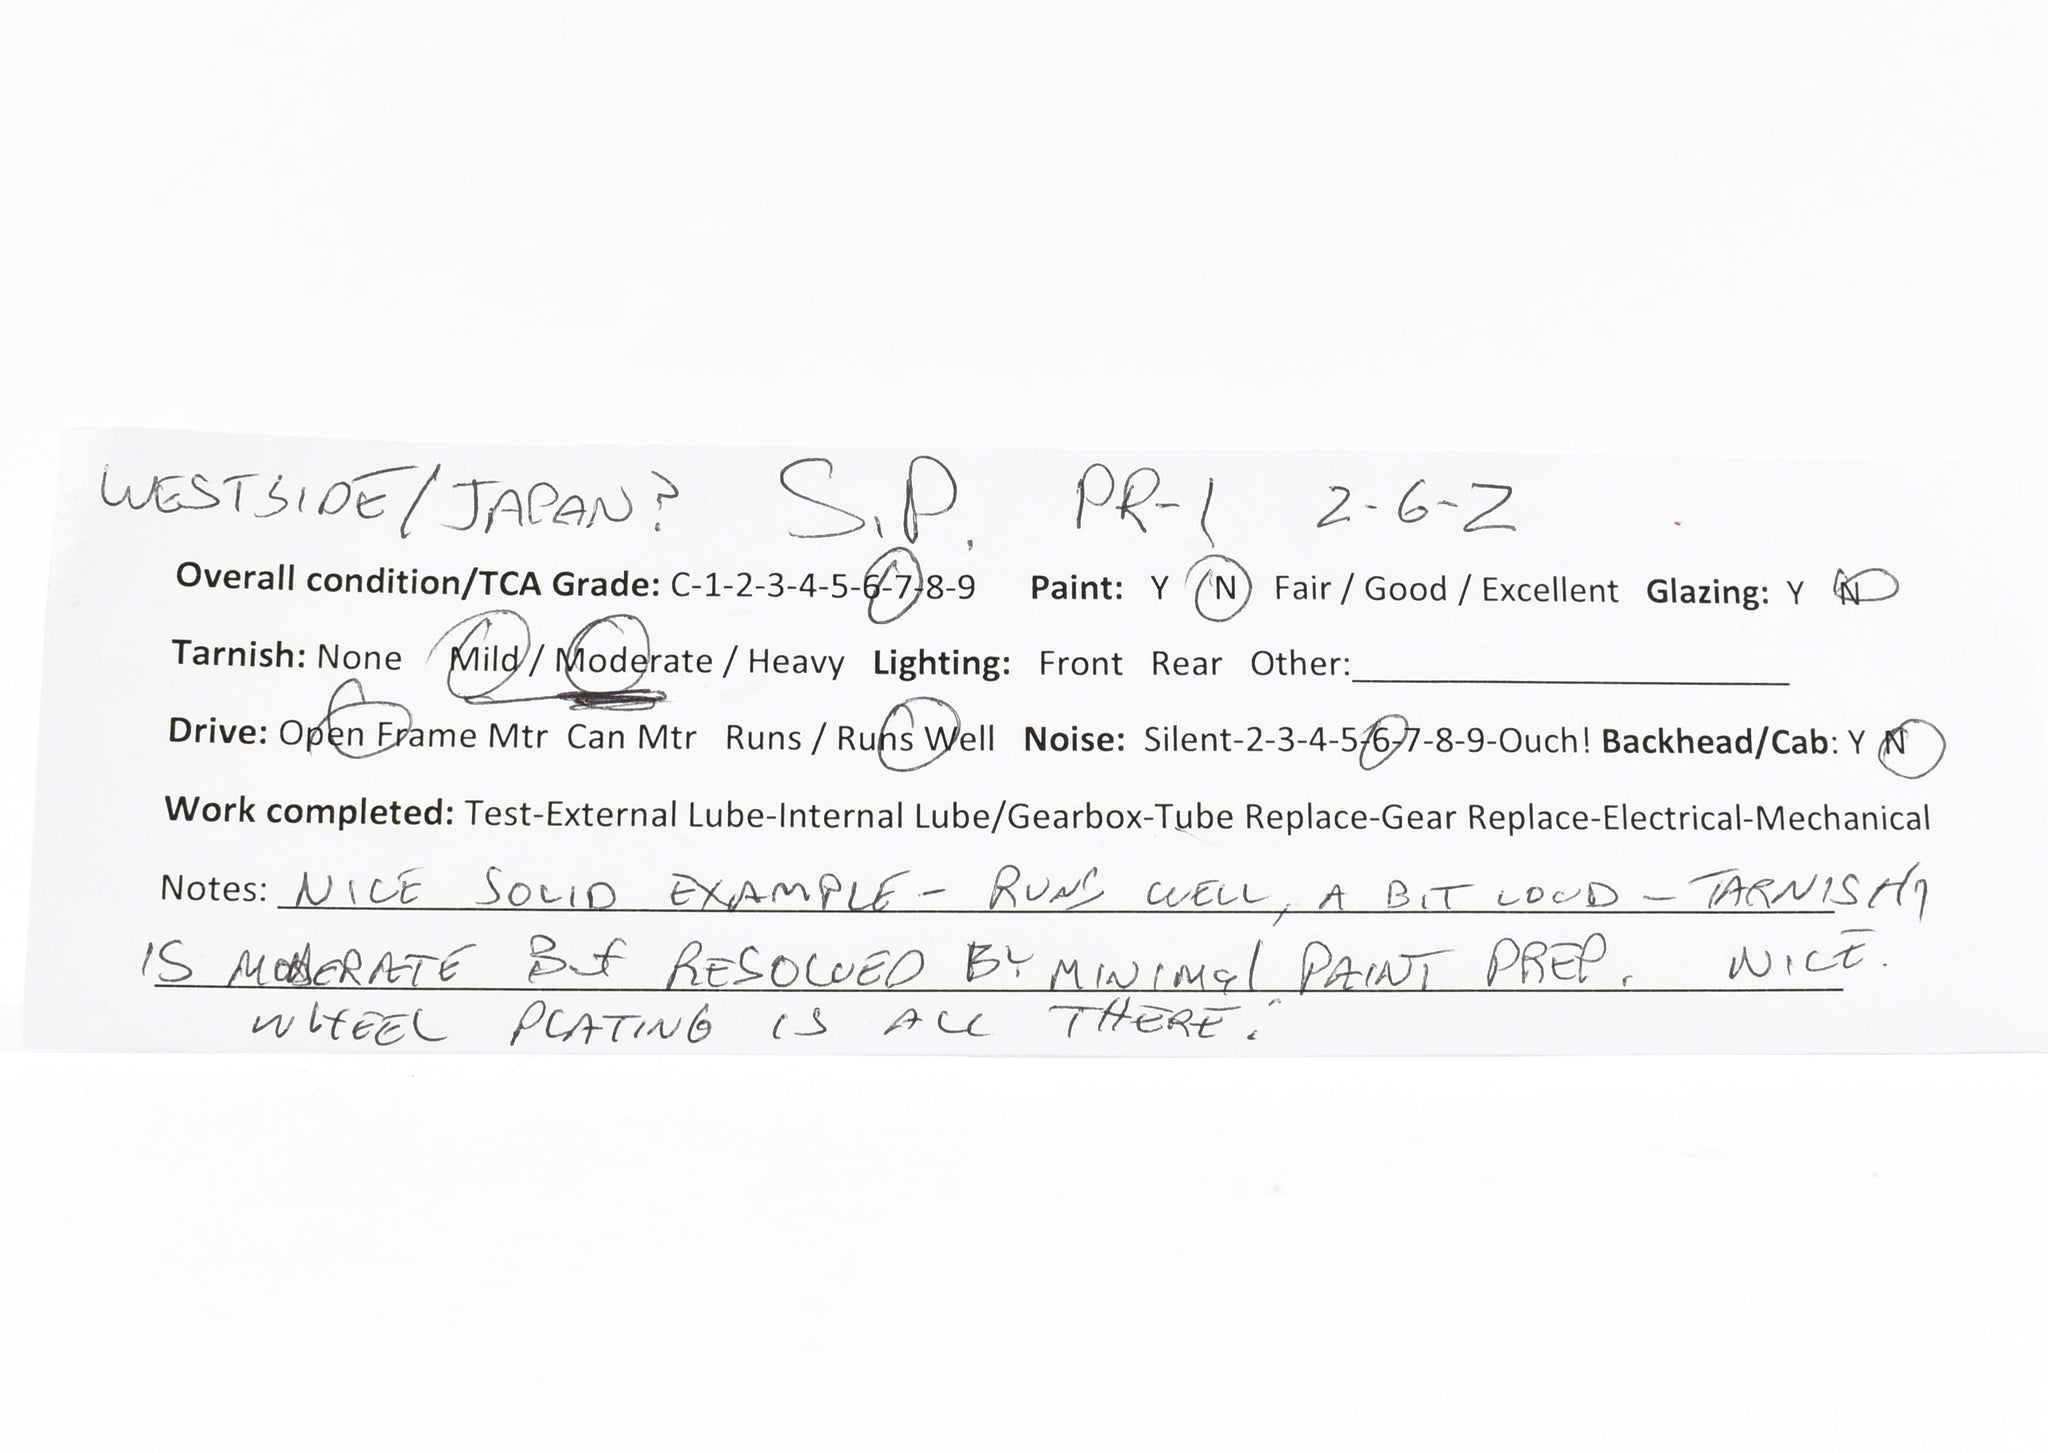 WESTSIDE/JAPAN? S.P. PR-1 2-6-2
Overall condition/TCA Grade: C-1-2-3-4-5-6-7-8-9 Paint: Y N Fair / Good / Excellent Glazing: Y N
Tarnish: None Mild / Moderate / Heavy Lighting: Front Rear Other:
Drive: Open Frame Mtr Can Mtr Runs / Runs Well Noise: Silent-2-3-4-5-6-7-8-9-Ouch! Backhead/Cab: Y N
Work completed: Test-External Lube-Internal Lube/Gearbox-Tube Replace-Gear Replace-Electrical-Mechanical
Notes: NICE SOLID EXAMPLE - RUNS WELL, A BIT LOUD - TARNISH
IS MODERATE BUT RESOLVED BY MINIMAL PAINT PREP. NICE.
WHEEL PLATING IS ALL THERE.